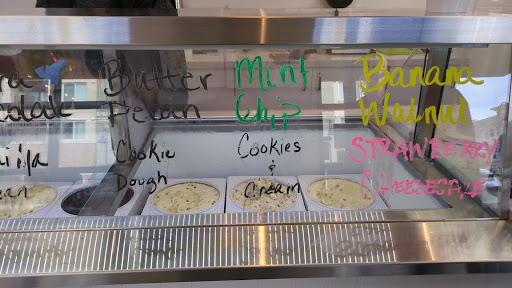 Butter
Pecan
Cookie
Dough
Mint
Chip
Cookies
&
Cream
Banana
Walnut
STRAWBERRY
CHEESECAKE